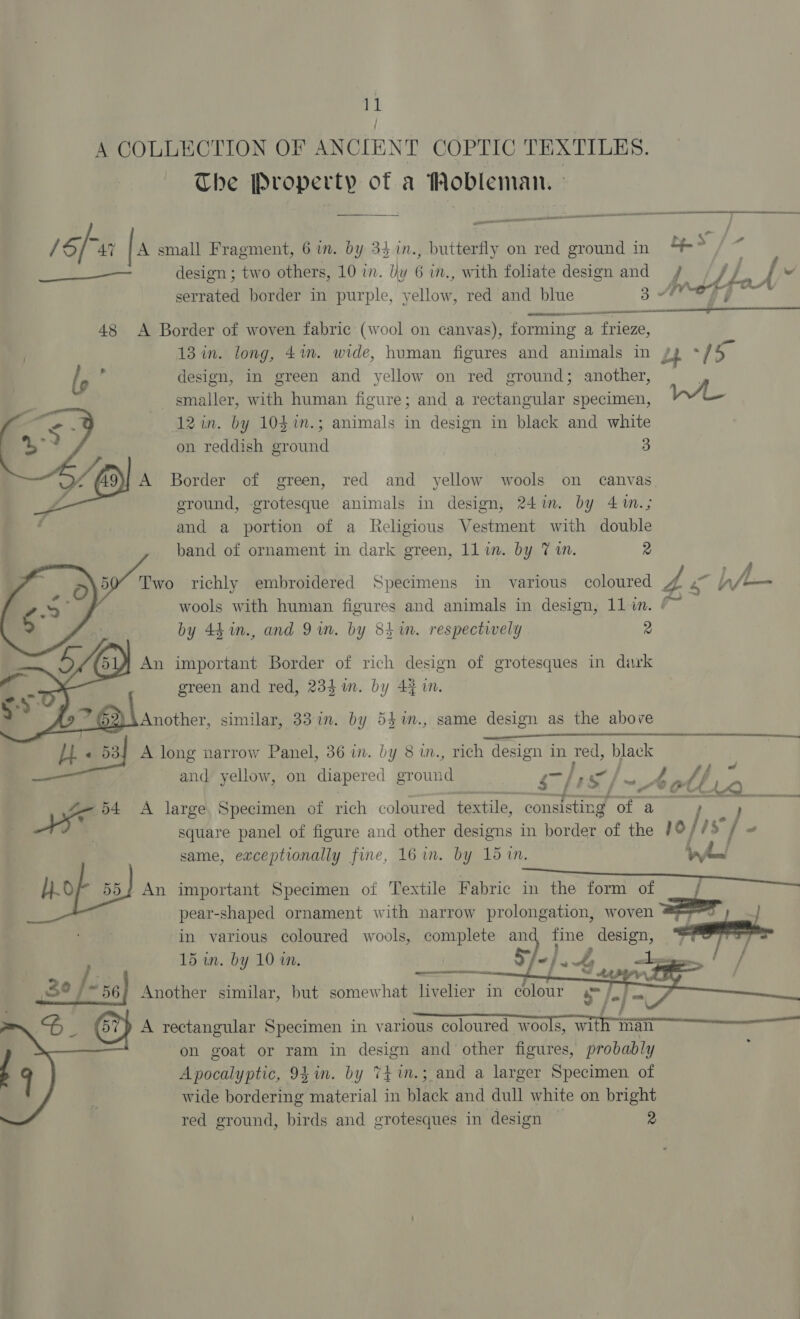 11
A COLLECTION OF ANCIENT COPTIC TEXTILES.
The Property of a Nobleman.
15/- 47 A small Fragment, 6 in. by 3½ in., butterfly on red ground in
design; two others, 10 in. by 6 in., with foliate design and
serrated border in purple, yellow, red and blue 3
48 A Border of woven fabric (wool on canvas), forming a frieze,
13 in. long, 4 in. wide, human figures and animals in
design, in green and yellow on red ground; another,
smaller, with human figure; and a rectangular specimen,
12 in. by 10½ in.; animals in design in black and white
on reddish ground 3
49 A Border of green, red and yellow wools on canvas
ground, grotesque animals in design, 24 in. by 4 in.;
and a portion of a Religious Vestment with double
band of ornament in dark green, 11 in. by 7 in. 2
50 Two richly embroidered Specimens in various coloured
wools with human figures and animals in design, 11 in.
by 4½ in., and 9 in. by 8½ in. respectively 2
51 An important Border of rich design of grotesques in dark
green and red, 23½ in. by 4¾ in.
52 Another, similar, 33 in. by 5½ in., same design as the above
53 A long narrow Panel, 36 in. by 8 in., rich design in red, black
and yellow, on diapered ground
54 A large Specimen of rich coloured textile, consisting of a
square panel of figure and other designs in border of the
same, exceptionally fine, 16 in. by 15 in.
55 An important Specimen of Textile Fabric in the form of
pear-shaped ornament with narrow prolongation, woven
in various coloured wools, complete and fine design,
15 in. by 10 in.
30/- 56 Another similar, but somewhat livelier in colour
57 A rectangular Specimen in various coloured wools, with man
on goat or ram in design and other figures, probably
Apocalyptic, 9½ in. by 7½ in.; and a larger Specimen of
wide bordering material in black and dull white on bright
red ground, birds and grotesques in design 2